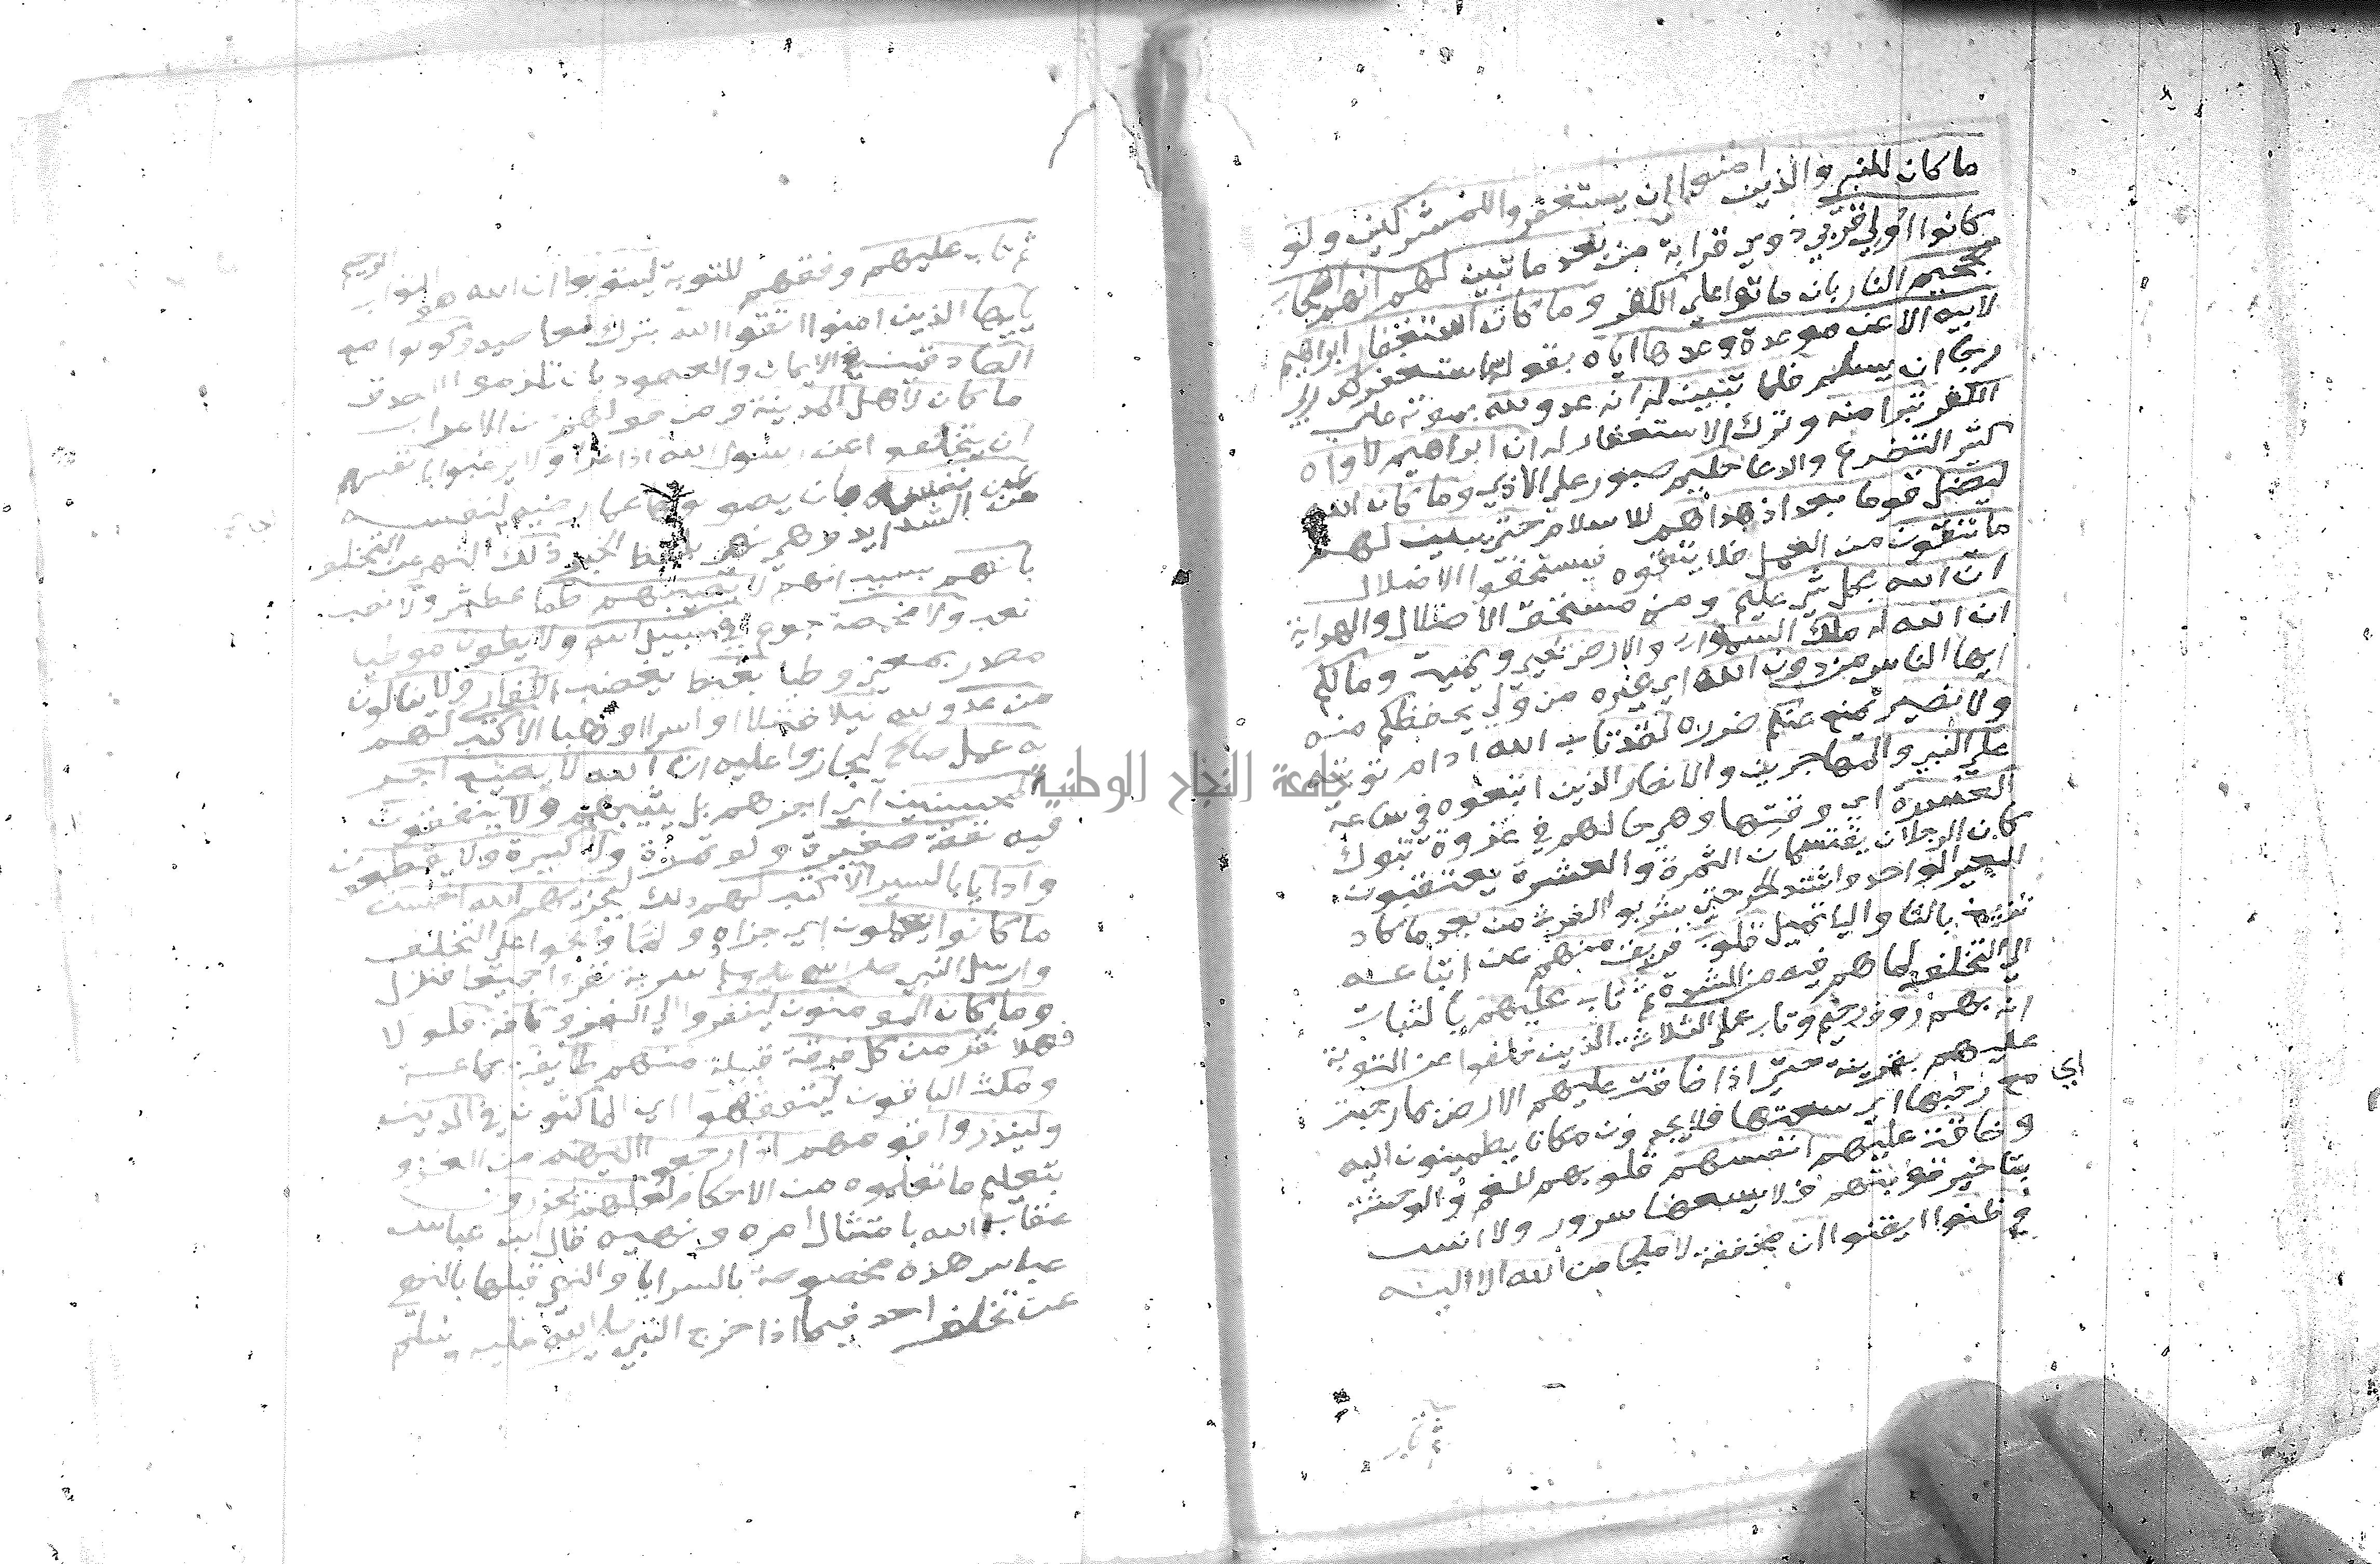 ما كان للنبي والذين امنوا ان يستغفروا للمشركين ولو
كانوا اولي قربي ذوي قرابة من بعد ما تبين لهم انهم اصحاب
الجحيم النار بان ماتوا علي الكفر وما كان استغفار ابراهيم
لابيه الا عن موعدة وعدها اياه بقوله ساستغفر لك ربي
رجا ان يسلم فلما تبين له انه عدو لله بموته علي
الكفر تبرا منه وترك الاستغفار له ان ابراهيم لاواه
كثير التضرع والدعا حليم صبور علي الاذي وما كان الله
ليضل قوما بعد اذ هداهم للاسلام حتي يبين لهم
ما يتقون من العمل فلا يتقوه فيستحقوا الاضلال
ان الله بكل شي عليم ومنه مستحق الاضلال والهداية
ان الله له ملك السموات والارض يحيي ويميت وما لكم
ايها الناس من دون الله اي غيره من ولي يحفظكم منه
ولا نصير يمنع عنكم ضرره لقد تاب الله ادام توبته
علي النبي والمهاجرين والانصار الذين اتبعوه في ساعة
العسرة اي وقتها وهي حالهم في غزوة تبوك
كان الرجلان يقتسمان الثمرة والعشرة يعتقبون
البعير الواحد واشتد الحر حتي شربوا الفرث من بعد ما كاد
تزيغ بالتا واليا تميل قلوب فريق منهم عن اتباعه
الي التخلف لما هم فيه من الشدة ثم تاب عليهم بالثبات
انه بهم روف رحيم وتاب علي الثلاثة الذين خلفوا عن التوبة
عليهم بقرينة حتي اذا ضاقت عليهم الارض بما رحبت
اي مع رحبها اي سعتها فلا يجدون مكانا يطمينون اليه
وضاقت عليهم انفسهم قلوبهم للغم والوحشة
بتاخير توبتهم فلا يسعها سرور ولا انس
وظنوا ايقنوا ان مخففة لا ملجا من الله الا اليه
ثم تاب
ثم تاب عليهم وفقهم للتوبة ليتوبوا ان الله هو التواب الرحيم
يايها الذين امنوا اتقوا الله بترك المعاصيه وكونوا مع
الصادقين في الايمان والعهود بان تلزموا الصدق
ما كان لاهل المدينة ومن حولهم من الاعراب
ان يتخلفوا عن رسول الله اذا غزا ولا يرغبوا بانفسهم
عن نفسه بان يصونوها عما رضيه لنفسه
من الشدايد وهي نهي بلفظ الخبر ذلك النهي عن التخلف
بانهم بسبب انهم لا يصيبهم ظما عطش ولا نصب
تعب ولا مخمصة جوع في سبيل الله ولا يطون موطيا
مصدر بمعني وطيا يغيظ يغضب الكفار ولا ينالون
من عدو لله نيلا قتلا او اسرا او نهبا الا كتب لهم
به عمل صالح ليجازوا عليه ان الله لا يضيع اجر
المحسنين اي اجرهم بل يثيبهم ولا ينفقون
فيه نفقة صغيرة ولو تمرة ولا كبيرة ولا يقطعون
واديا بالسير الا كتب لهم ذلك ليجزيهم الله احسن
ما كانوا يعملون اي جزاه ولما وبخوا علي التخلف
وارسل النبي صلي الله عليه وسلم سرية نفروا جميعا فنزل
وما كان المومنون لينفروا الي الغزو كافة فلولا
فهلا نفر من كل فرقة قبيلة منهم طايفة جماعة
ومكث الباقون ليتفقهوا اي الماكثون في الدين
ولينذروا قومهم اذا رجعوا اليهم من الغزو
بتعليم ما تعلموه من الاحكام لعلهم يحذرون
عقاب الله بامتثال امره ونهيه قال ابن عباس
عباس هذه مخصوصة بالسرايا والتي قبلها بالنهي
عن تخلف احد فيما اذا خرج النبي صلي الله عليه وسلم
جامعة النجاح الوطنية